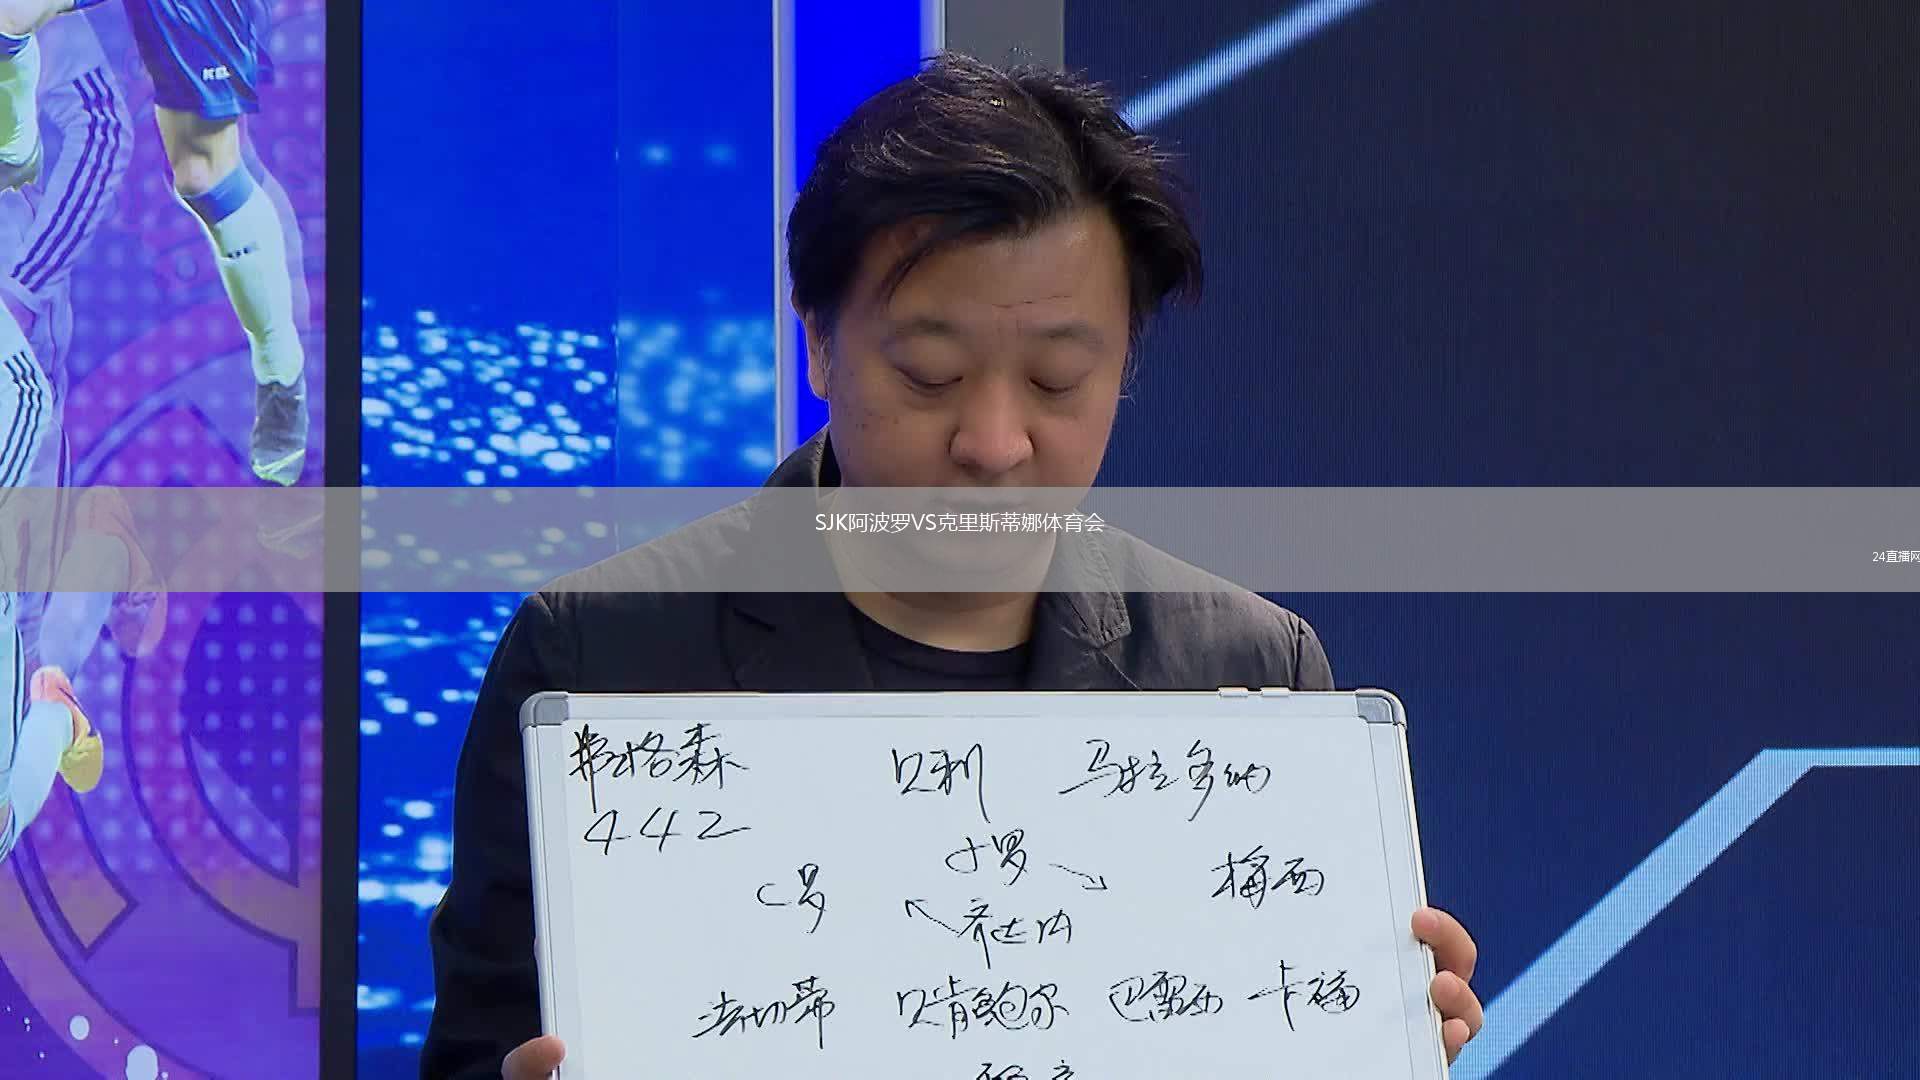 SJK阿波罗VS克里斯蒂娜体育会
24直播网
弗格森 贝利 马拉多纳
442
小罗
C罗 梅西
齐达内
法切蒂 贝肯鲍尔 巴雷西 卡福